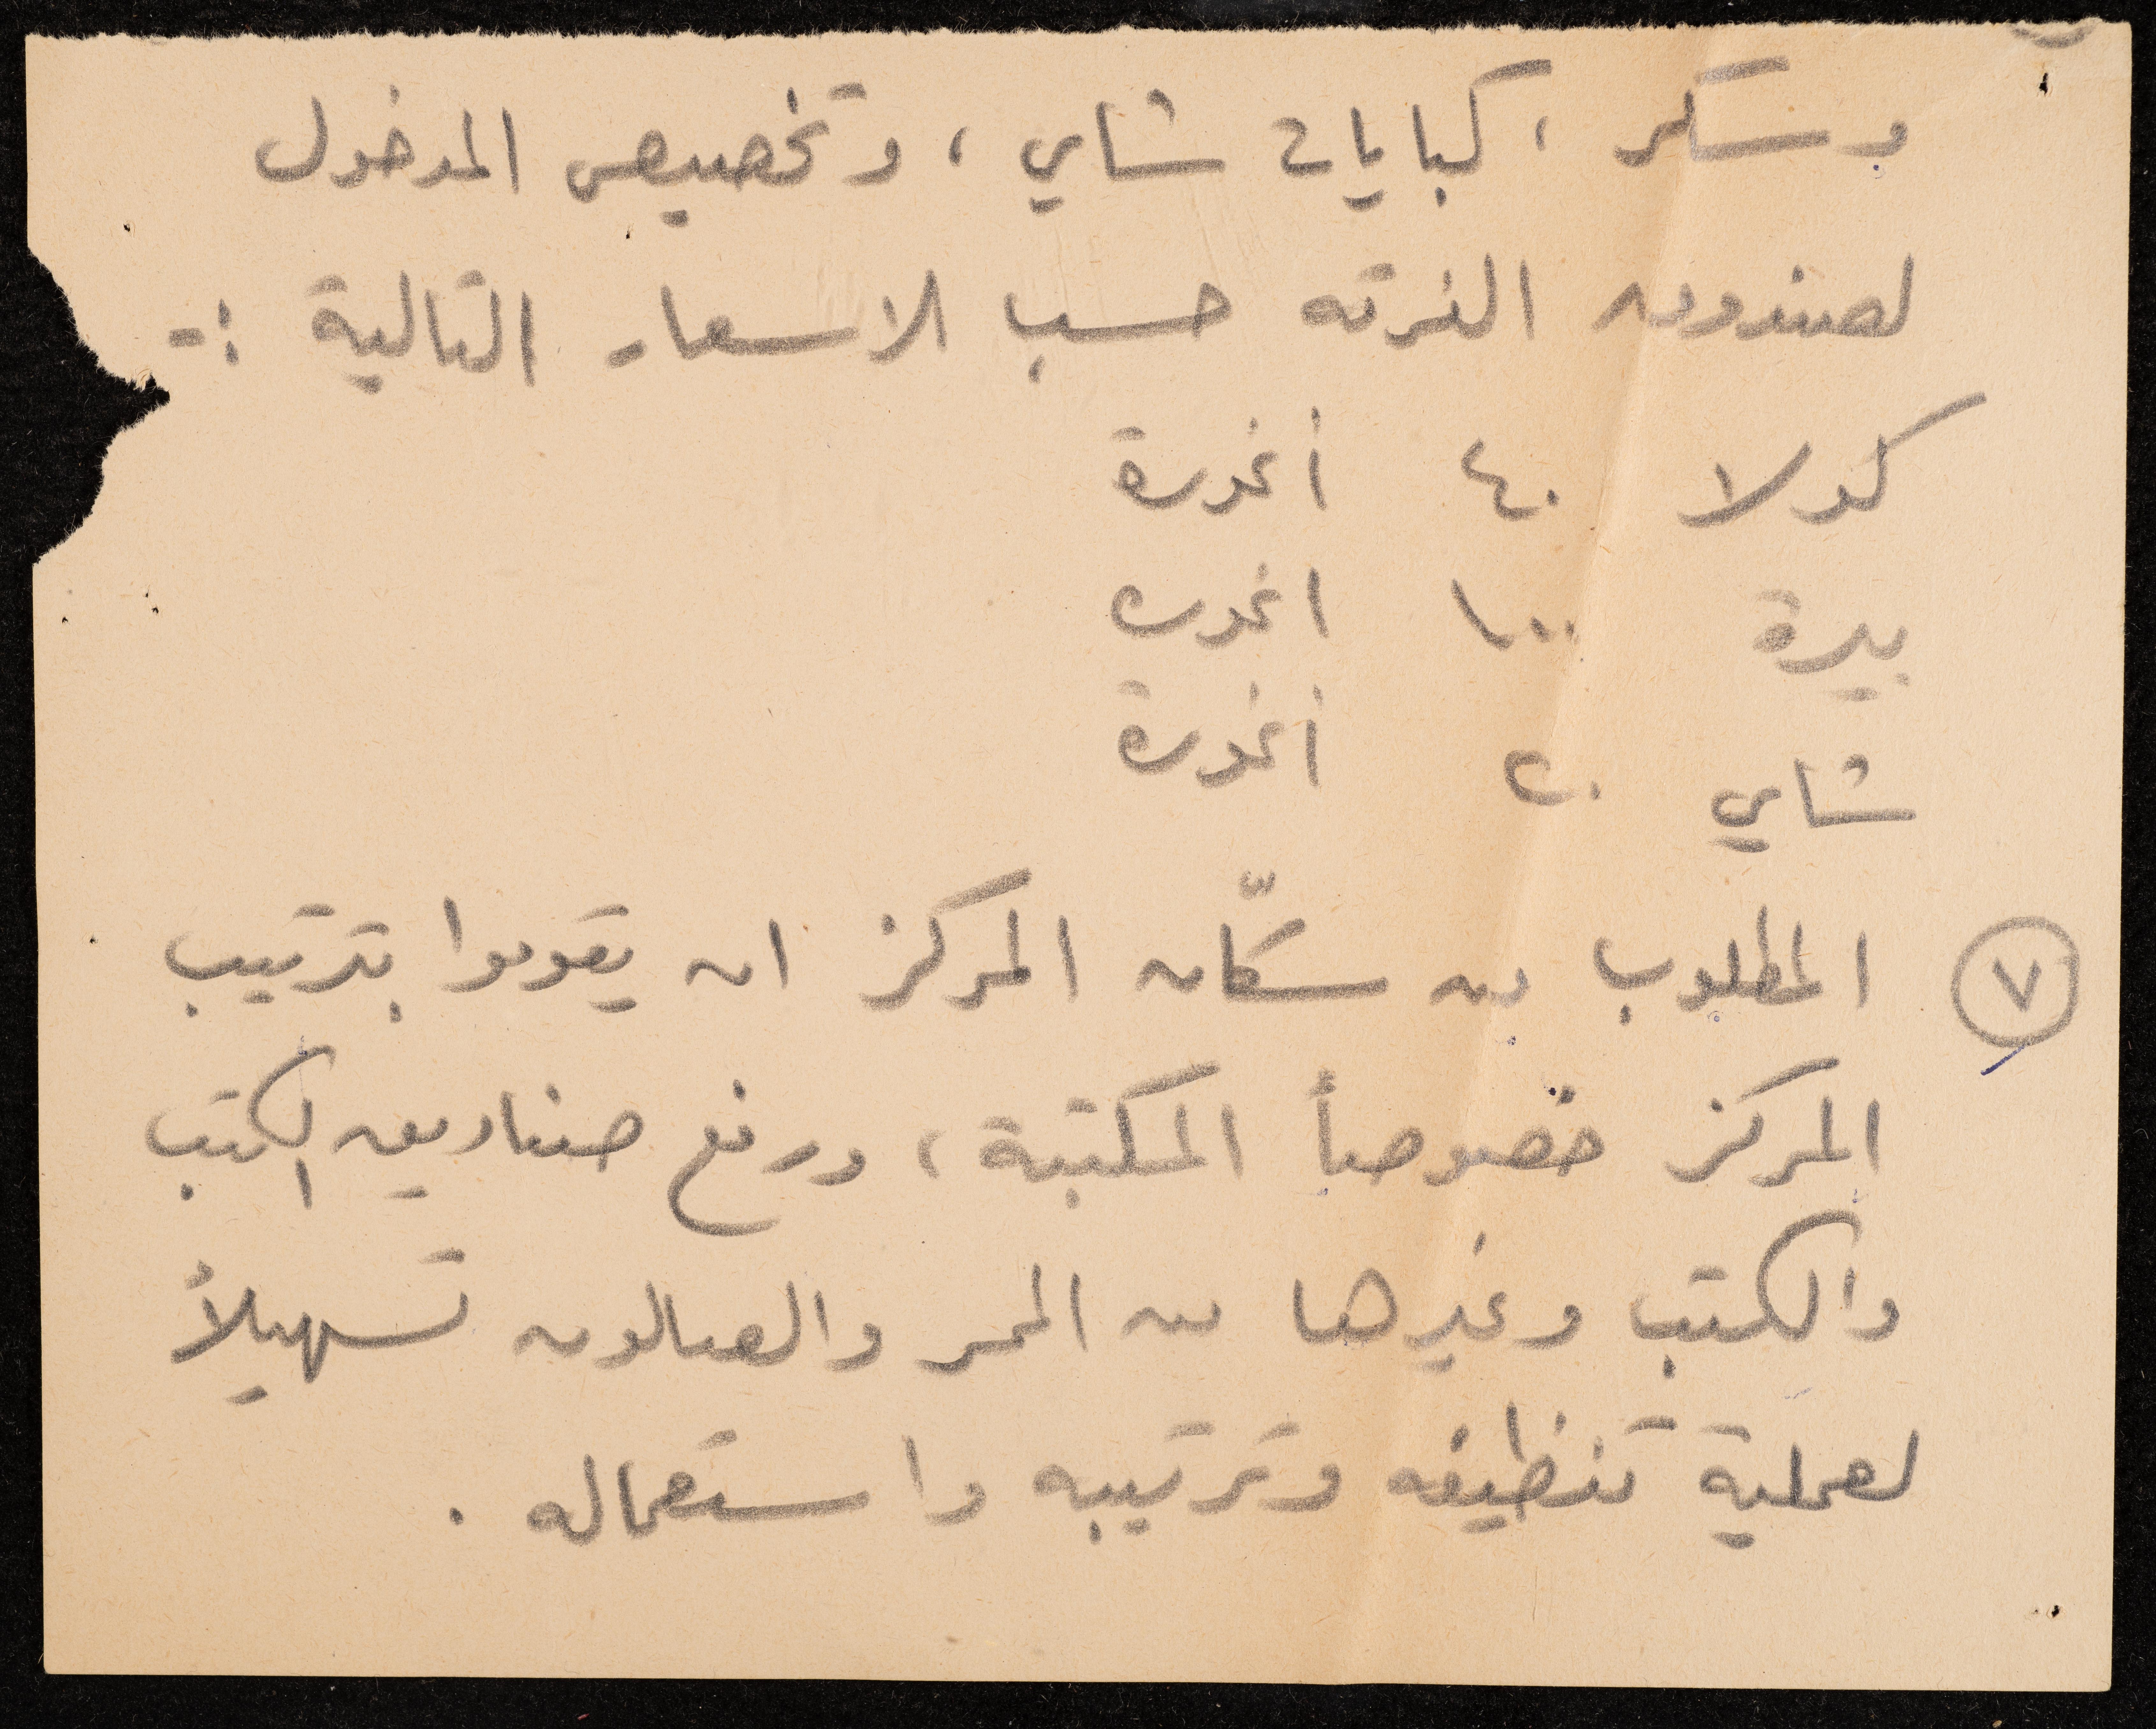 وسكر ، كبايات شاي ، وتخصيص المدخول
لصندوق الفرقه حسب الاسعار التالية :-
كولا ٤٠ أغورة
بيرة ١٠٠ اغوره
شاي ٢٠ أغورة
٧ المطلوب من سكّان المركز ان يقوموا بترتيب
المركز خصوصاً المكتبة ، ورفع صناديق الكتب
والكتب وغيرها من الممر والصالون تسهيلاً
لعملية تنظيفه وترتيبه واستعماله .